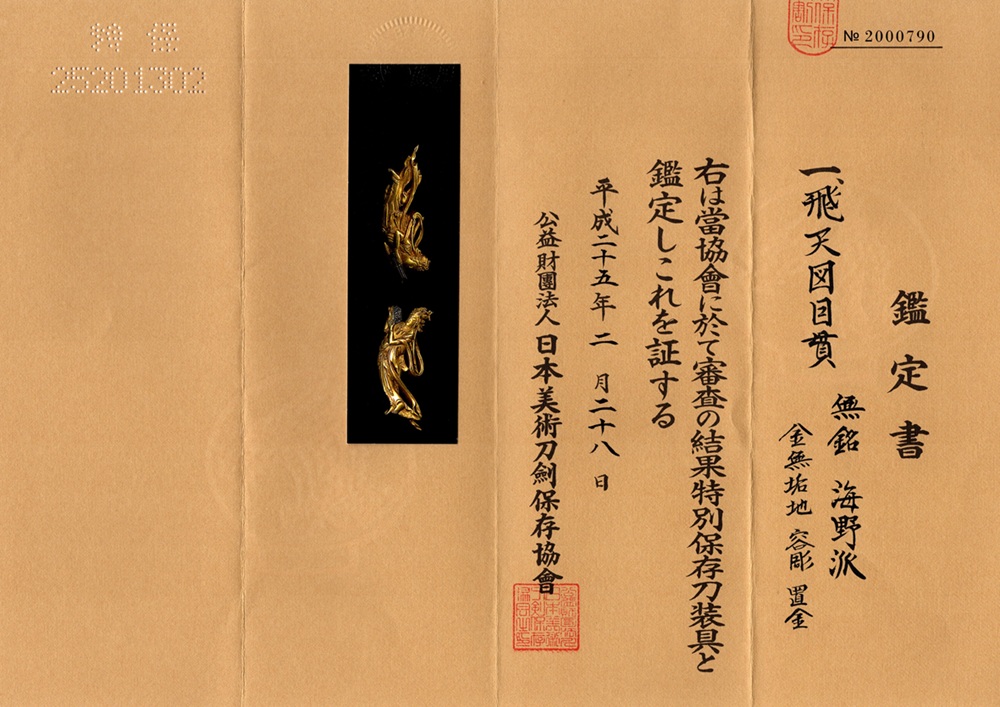 № 2000790
鑑定書
一、飛天図目貫
無銘 海野派
金無垢地 容彫 置金
右は當協會に於て審査の結果特別保存刀装具と
鑑定しこれを証する
平成二十五年 二 月二十八 日
公益財團法人 日本美術刀劍保存協會
25201302